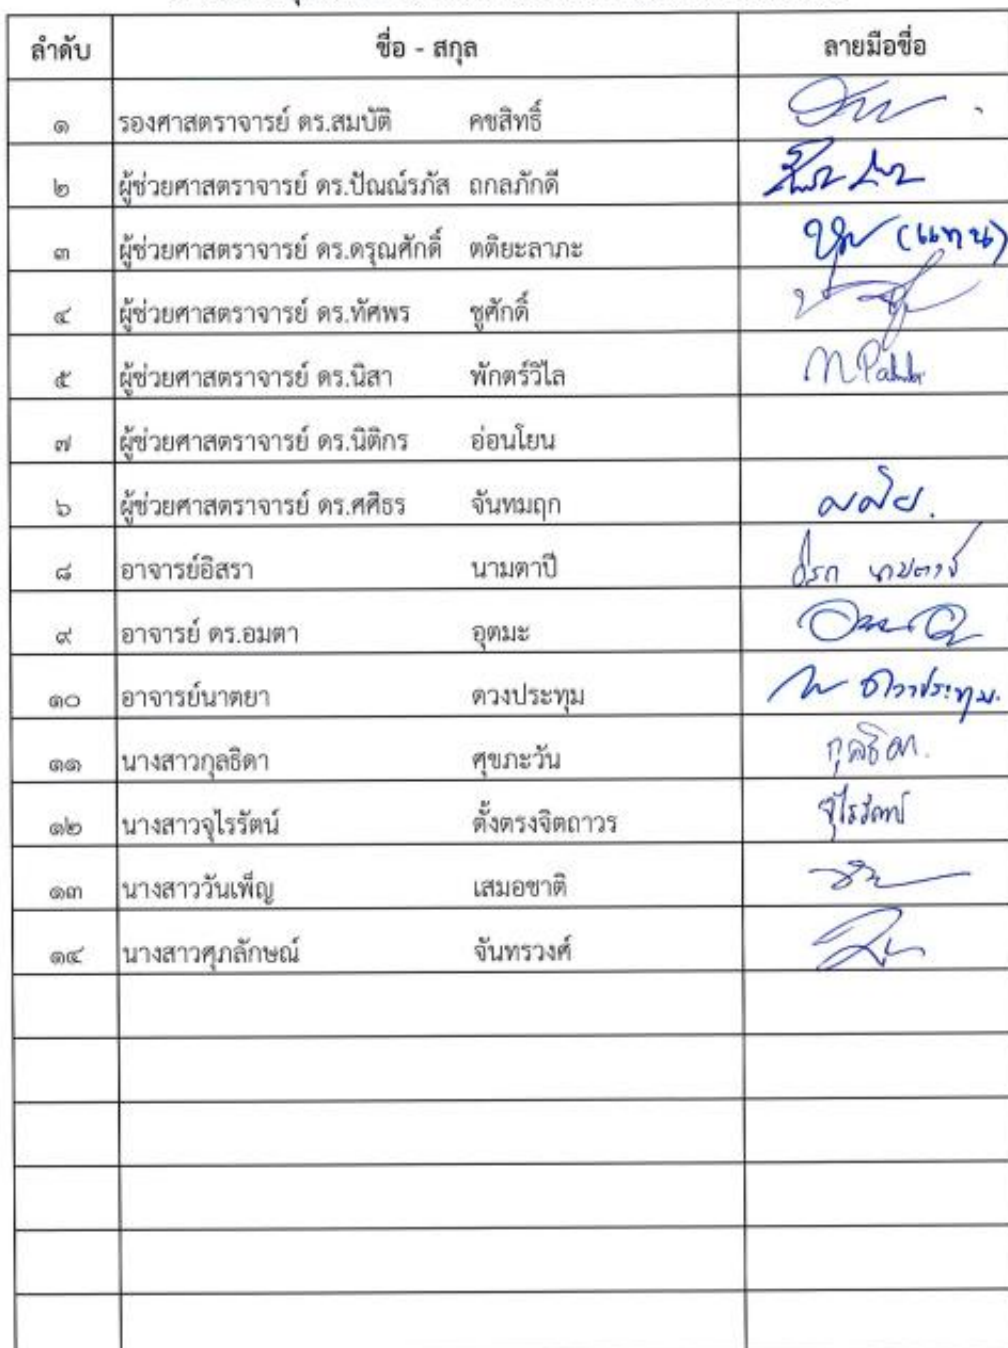 ลำดับ ชื่อ - สกุล ลายมือชื่อ
๑ รองศาสตราจารย์ ดร.สมบัติ คชสิทธิ์
๒ ผู้ช่วยศาสตราจารย์ ดร.ปัณณ์รภัส ถกลภักดี
๓ ผู้ช่วยศาสตราจารย์ ดร.ดรุณศักดิ์ ตติยะลาภะ (แทน)
๔ ผู้ช่วยศาสตราจารย์ ดร.ทัศพร ชูศักดิ์
๕ ผู้ช่วยศาสตราจารย์ ดร.นิสา พักตร์วิไล
๗ ผู้ช่วยศาสตราจารย์ ดร.นิติกร อ่อนโยน
๖ ผู้ช่วยศาสตราจารย์ ดร.ศศิธร จันทมฤก
๘ อาจารย์อิสรา นามตาปี
๙ อาจารย์ ดร.อมตา อุตมะ
๑๐ อาจารย์นาตยา ดวงประทุม ดวงประทุม.
๑๑ นางสาวกุลธิดา ศุขภะวัน กุลธิดา.
๑๒ นางสาวจุไรรัตน์ ตั้งตรงจิตถาวร จุไรรัตน์
๑๓ นางสาววันเพ็ญ เสมอชาติ
๑๔ นางสาวศุภลักษณ์ จันทรวงศ์